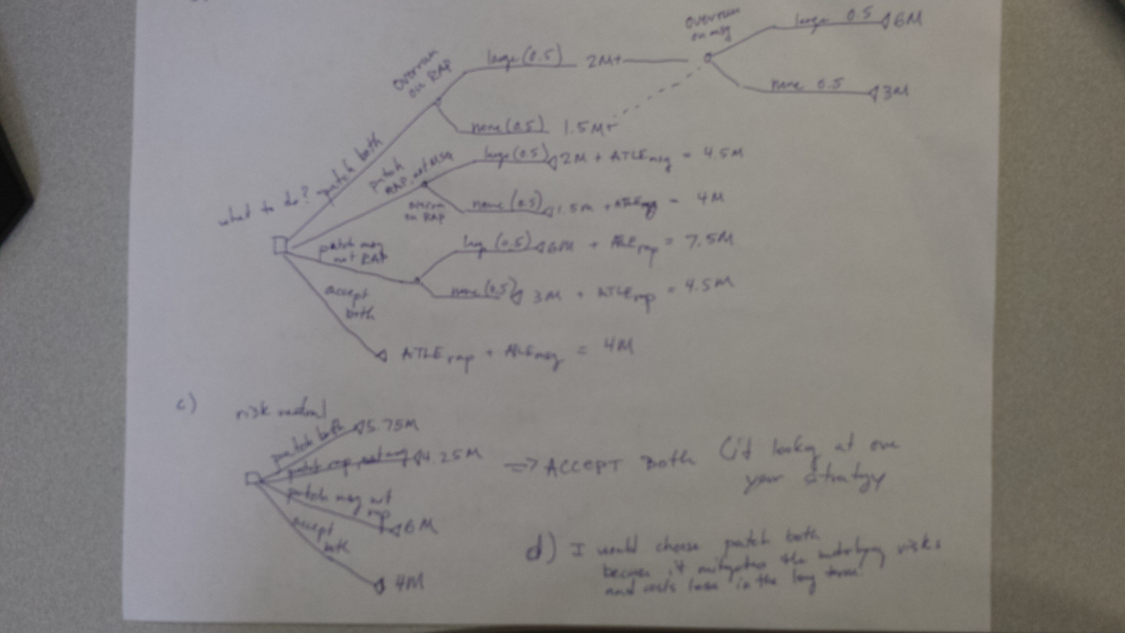 overrun on msg
large 0.5 6M
none 0.5 3M
overrun on RAP
large (0.5) 2M+
none (0.5) 1.5M+
what to do?
patch both
patch RAP, not MSG
large (0.5) 2M + ATLE msg = 4.5M
overrun on RAP
none (0.5) 1.5M + ATLE msg = 4M
patch msg not RAP
large (0.5) 6M + ALE rap = 7.5M
none (0.5) 3M + ATLE rap = 4.5M
accept both
ATLE rap + ALE msg = 4M
c) risk neutral
patch both 5.75M
patch rap, not msg 4.25M
patch msg not rap 6M
accept both 4M
=> ACCEPT BOTH (if looking at one
year strategy
d) I would choose patch both
because it mitigates the underlying risks
and costs less in the long term